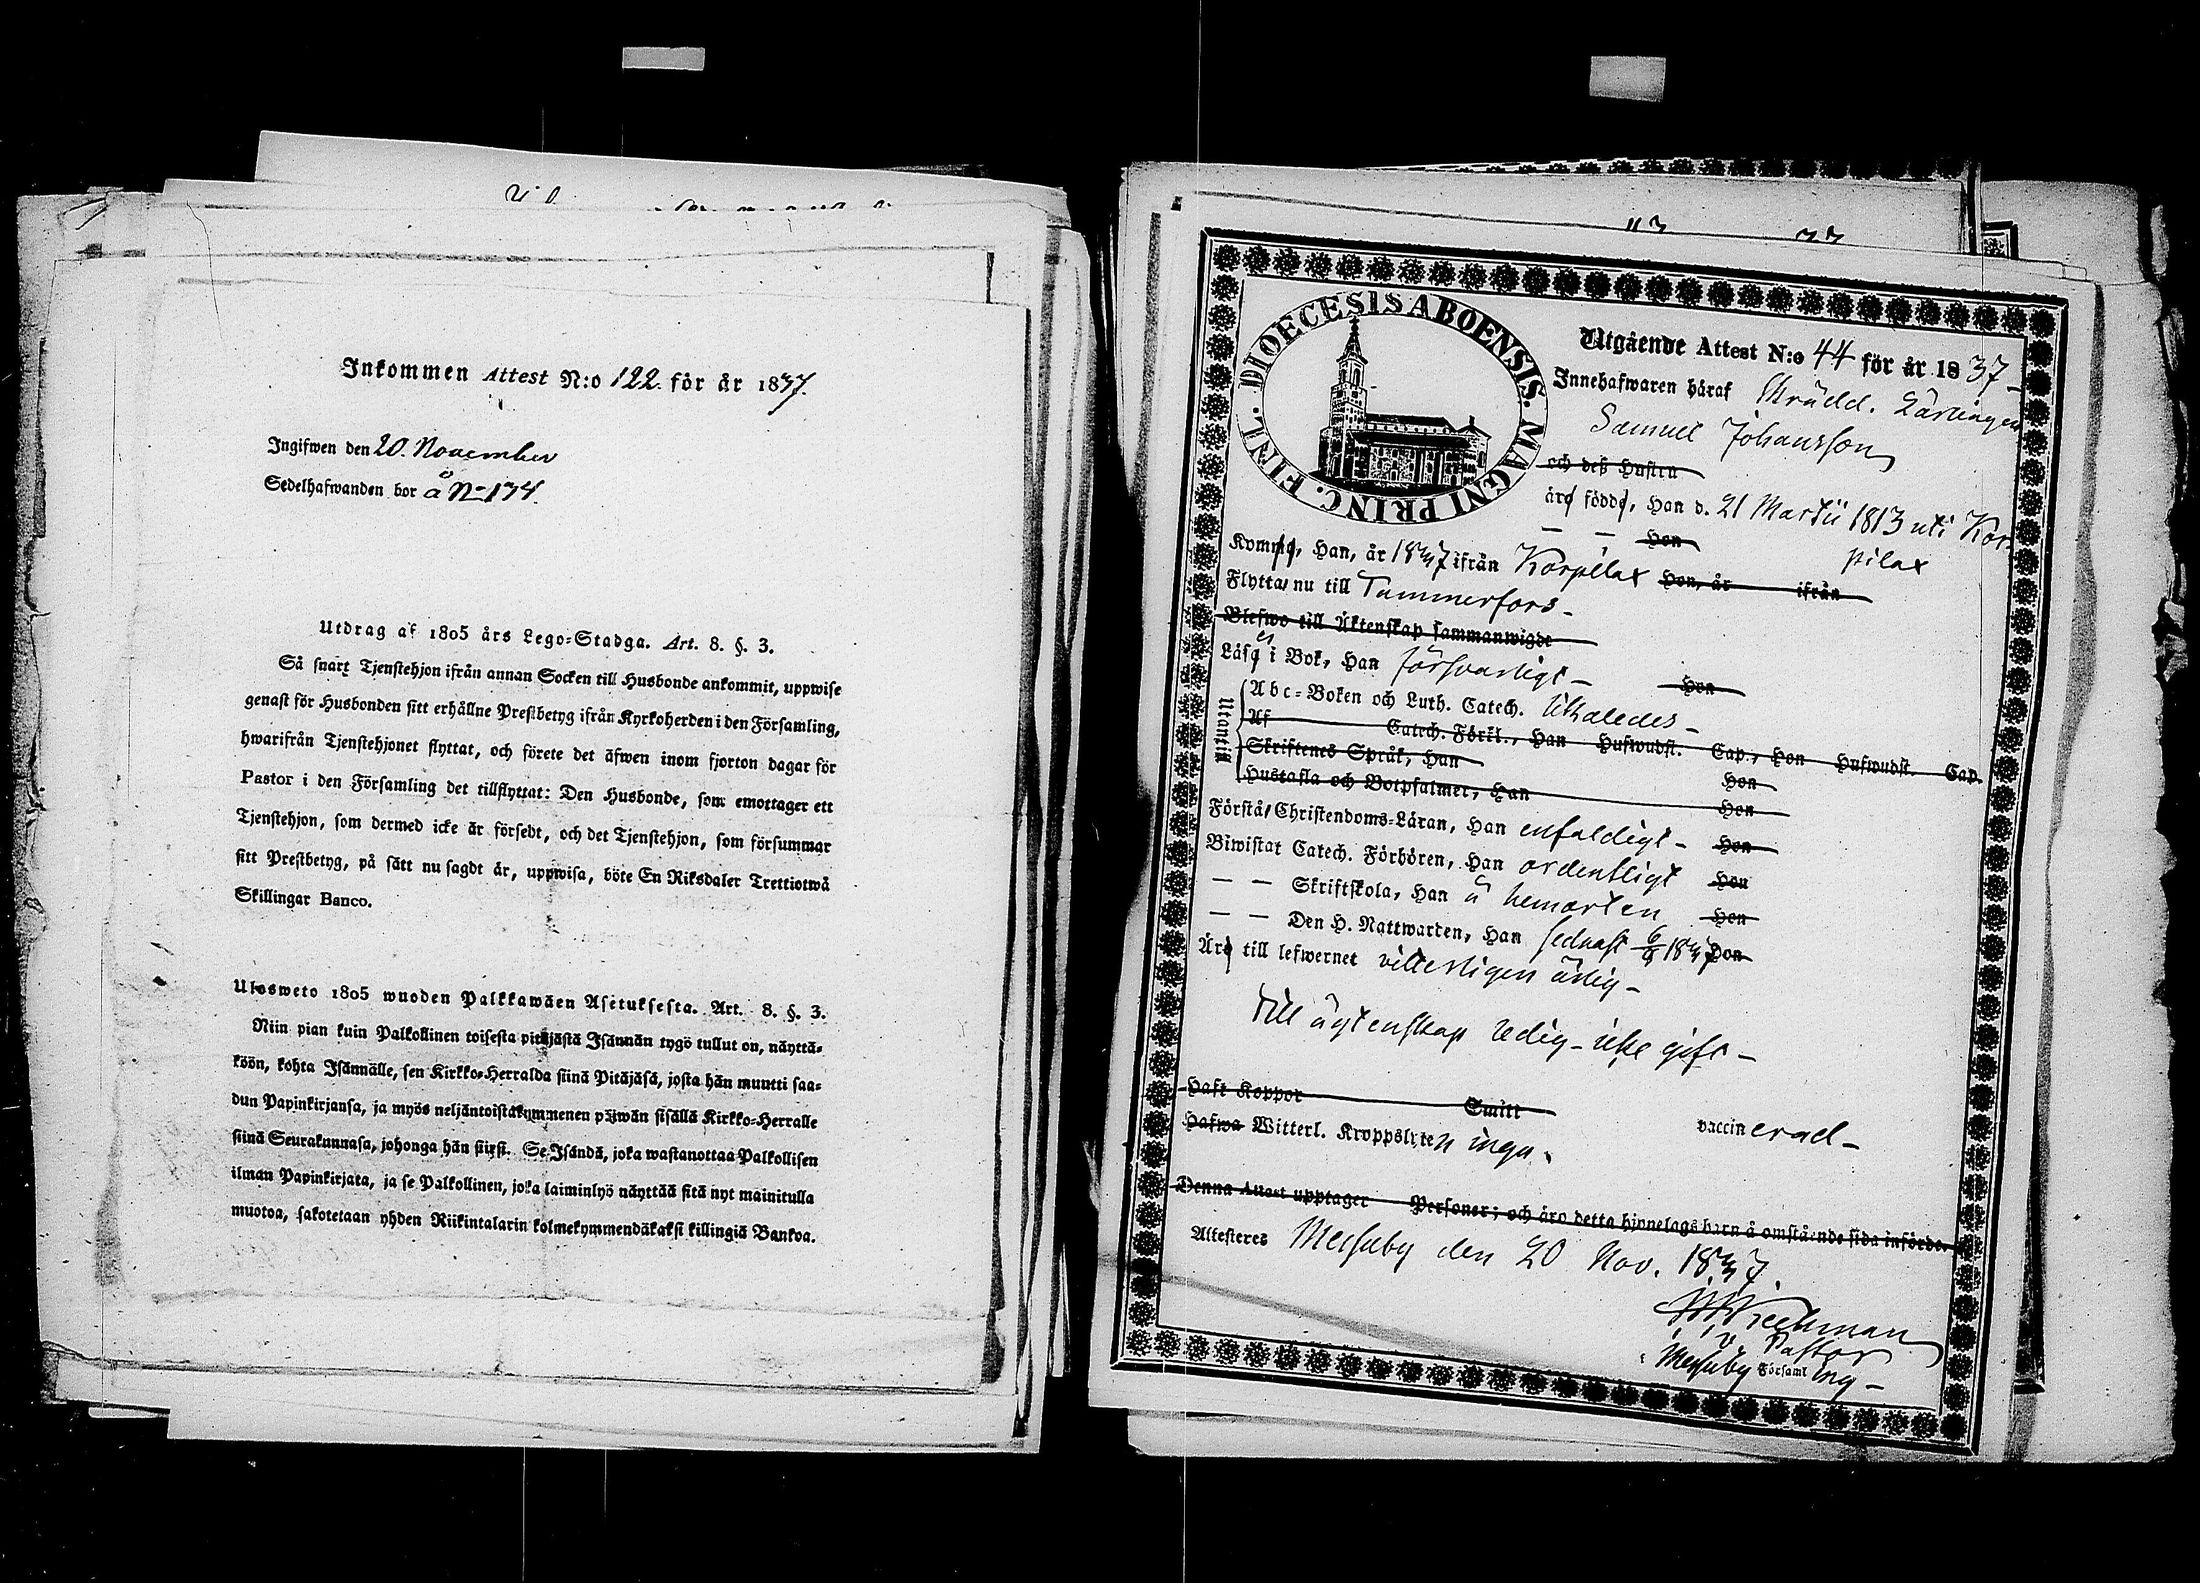 Inkommen Attest N:o 122. för år 1837.
Ingifwen den 20. November
Sedelhafwanden bor å No 174.
Utdrag af 1805 års Lego-Stadga. Art. 8. §. 3.
Så snart Tjenstehjon ifrån annan Socken till Husbonde ankommit, uppwise
genast för Husbonden sitt erhållne Prestbetyg ifrån Kyrkoherden i den Församling,
hwarifrån Tjenstehjonet flyttat, och förete det äfwen inom fjorton dagar för
Pastor i den Församling det tillflyttat: Den Husbonde, som emottager ett
Tjenstehjon, som dermed icke är försedt, och det Tjenstehjon, som försummar
sitt Prestbetyg, på sätt nu sagdt är, uppwisa, böte En Riksdaler Trettiotwå
Skillingar Banco.
Ulosweto 1805 wuoden Palkkawäen Asetuksesta. Art. 8. §. 3.
Niin pian kuin Palkollinen toisesta pitäjästä Isännän tygö tullut on, näyttä-
köön, kohta Isännälle, sen Kirkko-Herralda siinä Pitäjäsä, josta hän muutti saa-
dun Papinkirjansa, ja myös neljäntoistakymmenen päiwän sisällä Kirkko-Herralle
siinä Seurakunnasa, johonga hän siirsi. Se Isändä, joka wastanottaa Palkollisen
ilman Papinkirjata, ja se Palkollinen, joka laiminlyö näyttää sitä nyt mainitulla
muotoa, sakotetaan yhden Riikintalarin kolmekymmendäkaksi killingiä Bankoa.
DIOECESIS ABOENSIS. MAGNI PRINC. FINL.
Utgående Attest N:o 44 för år 1837-
Innehafwaren häraf Lärlingen
Samuel Johansson
och deß Hustru
äro födde, Han d. 21 Martii 1813 uti Kor-
pilax
— — Hon
Kommo, Han, år 1837 ifrån Korpilax Hon, år ifrån
Flytta nu till Tammerfors-
Blefwo till Äktenskap sammanwigde
Läsa i Bok, Han försvarligt- Hon
Utantill
Abc-Boken och Luth. Catech. likaledes-
Af Catech. Förkl., Han Hufwudst. Cap., Hon Hufwudst. Cap.
Skriftenes Språk, Han Hon
Hustafla och Botpsalmer, Han Hon
Förstå Christendoms-Läran, Han enfaldigt- Hon
Biwistat Catech. Förhören, Han ordentligt Hon
— — Skriftskola, Han å hemorten Hon
— — Den H. Nattwarden, Han sednast 6/8 1837 Hon
Äro till lefwernet ärlig-
Till ägtenskap ledig - icke gift-
Haft Koppor Smitt vaccinerad-
Hafwa Witterl. Kroppslyten inga.
Denna Attest upptager Personer; och äro detta hjonelags barn å omstående sida införde.
Attesteres Messuby den 20 Nov. 1837.
v Pastor
i Messuby Församling-